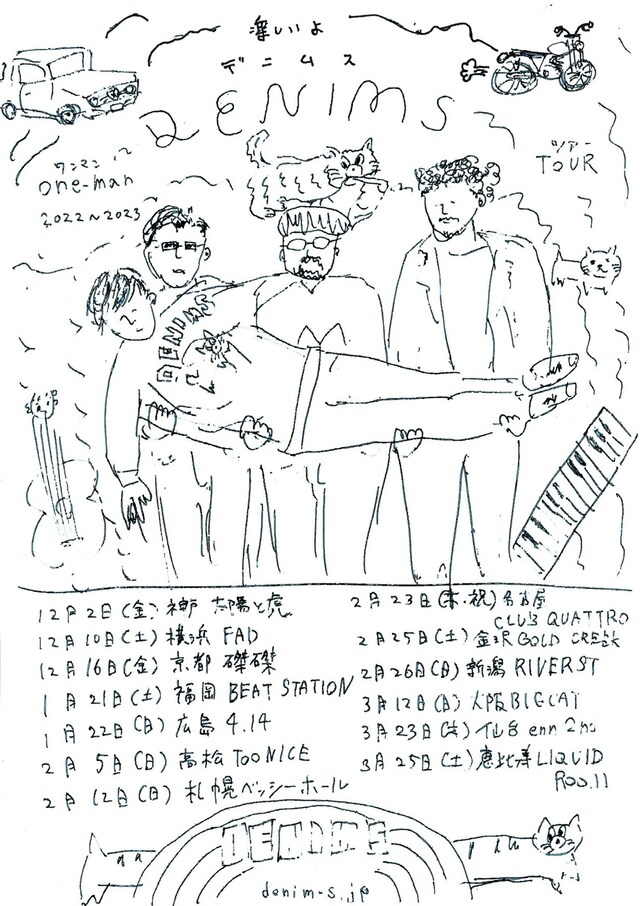 深いよ
デニムス
DENIMS
ワンマン
one-man
2022~2023
ツアー
TOUR
DENIMS
12月2日(金) 神戸 太陽と虎
12月10日(土) 横浜 FAD
12月16日(金) 京都 磔磔
1月21日(土) 福岡 BEAT STATION
1月22日(日) 広島 4.14
2月5日(日) 高松 TOONICE
2月12日(日) 札幌ベッシーホール
2月23日(木・祝) 名古屋
CLUB QUATTRO
2月25日(土) 金沢GOLD CREEK
2月26日(日) 新潟 RIVERST
3月12日(日) 大阪BIGCAT
3月23日(木) 仙台 enn 2nd
3月25日(土) 恵比寿LIQUID
ROOM
DENIMS
denim-s.jp